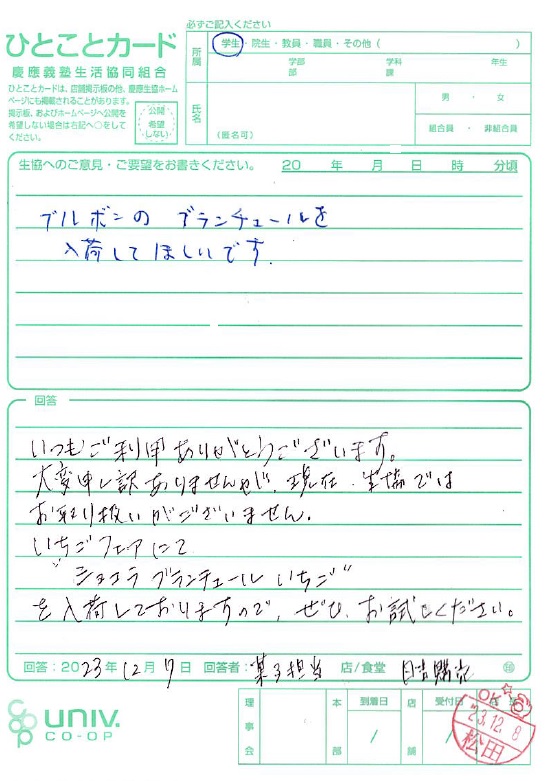 必ずご記入ください
ひとことカード
慶應義塾生活協同組合
ひとことカードは、店舗掲示板の他、慶應生協ホーム
ページにも掲載されることがあります。
掲示板、およびホームページへ公開を
希望しない場合は右記へ○をして
ください。
公開
希望
しない
所属
学生・院生・教員・職員・その他（ ）
学部 学科 年生
部 課
氏名
（匿名可）
男・女
組合員・非組合員
生協へのご意見・ご要望をお書きください。 20 年 月 日 時 分頃
ブルボンの ブランチュールを
入荷してほしいです.
回答
いつもご利用ありがとうございます。
大変申し訳ありませんが、現在、生協では
お取り扱いがございません.
いちごフェアにて
"ショコラブランチュール いちご"
を入荷しておりますので、ぜひ、お試しください。
回答：2023年12月7日 回答者：菓子担当 店/食堂 日吉購売
univ.
CO-OP
理事会
本部
到着日
/
店舗
受付日
/
OK
23.12.8
松田